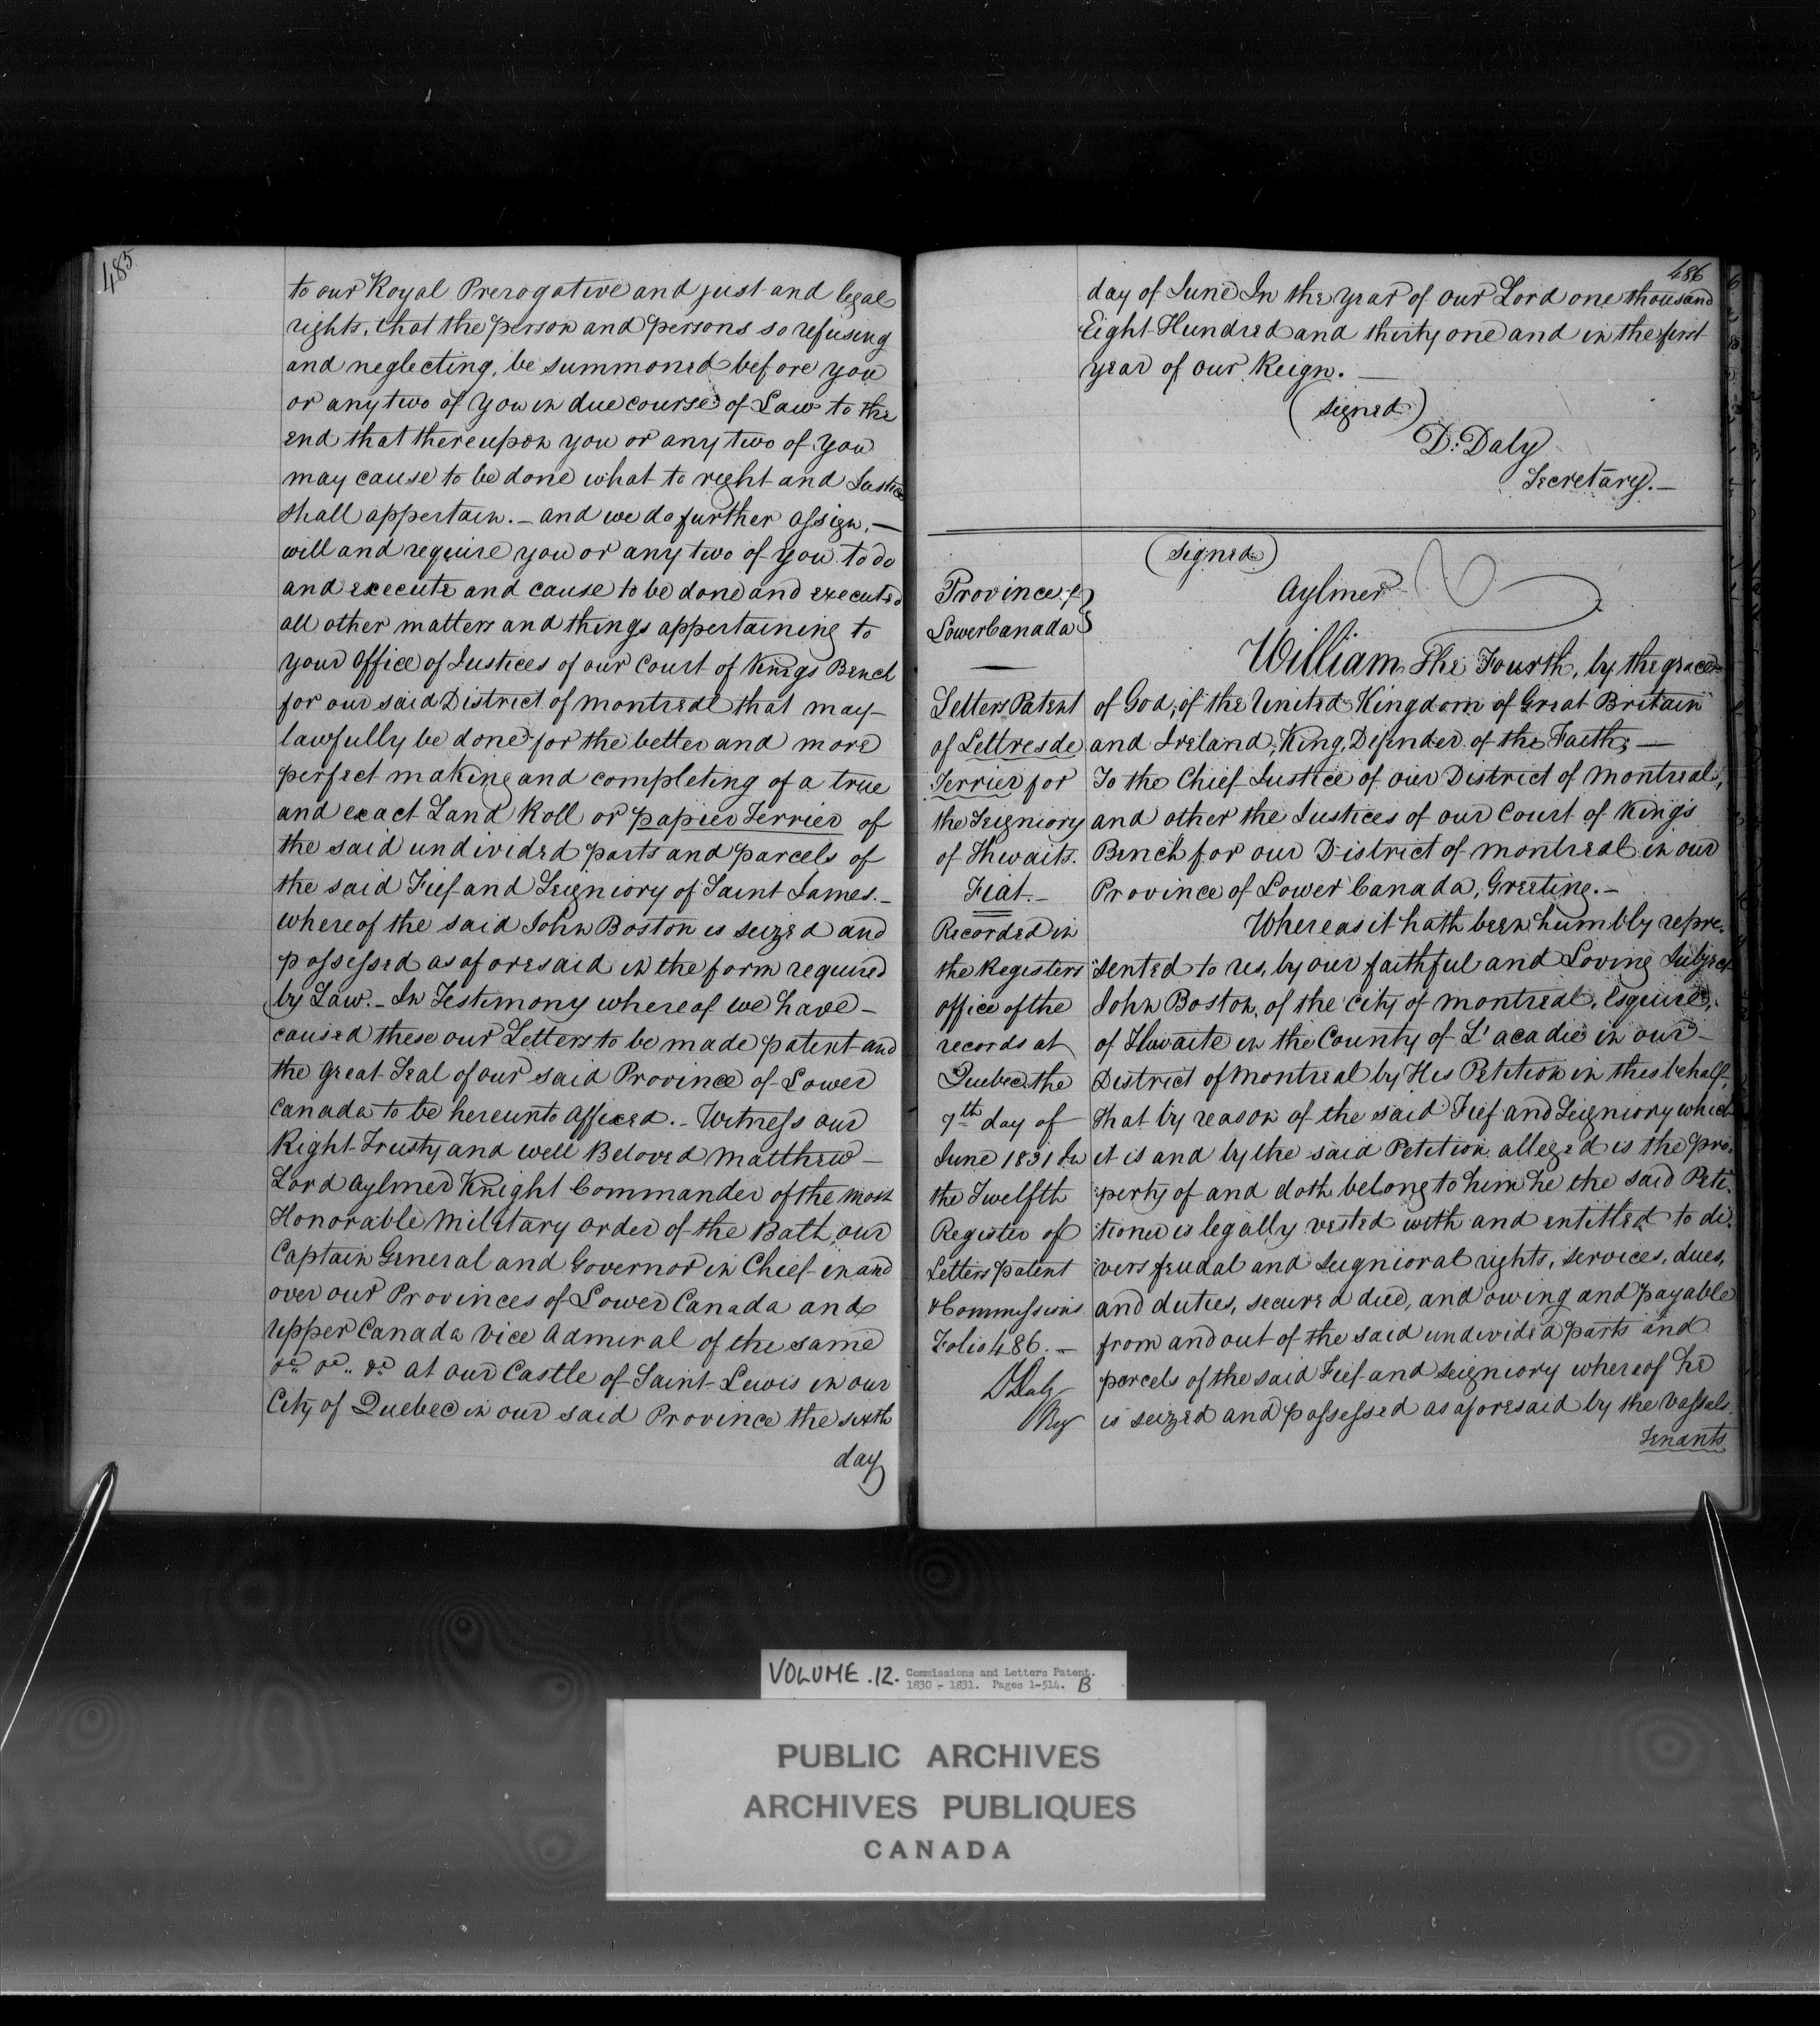 485
to our Royal Prerogative and just and legal
rights, that the person and persons so refusing
and neglecting, be summoned before you
or any two of you in due course of Law to the
end that thereupon you or any two of you
may cause to be done what to right and Justice
shall appertain. – and we do further assign, –
will and require you or any two of you to do
and execute and cause to be done and executed
all other matters and things appertaining to
your Office of Justices of our Court of Kings Bench
for our said District of Montreal that may –
lawfully be done for the better and more
perfect making and completing of a true
and exact Land Roll or papier Terrier of
the said undivided parts and parcels of
the said Fief and Seigniory of Saint James. –
whereof the said John Boston is seized and
possessed as aforesaid in the form required
by Law. – In Testimony whereof we have –
caused these our Letters to be made patent and
the great Seal of our said Province of Lower
Canada to be hereunto affixed. – Witness our
Right Trusty and well Beloved Matthew –
Lord Aylmer Knight Commander of the most
Honorable Military order of the Bath, our
Captain General and Governor in Chief in and
over our Provinces of Lower Canada and
upper Canada Vice Admiral of the same
&c. &c. &c. at our Castle of Saint Lewis in our
City of Quebec in our said Province the sixth
day
486
day of June In the year of our Lord one thousand
Eight Hundred and thirty one and in the first
year of our Reign. –
(signed)
D. Daly
Secretary. –
(signed)
Aylmer
Province of }
Lower Canada }
Letters Patent
of Lettres de
Terrier for
the Seigniory
of Thwaits.
Fiat. –
Recorded in
the Registers
office of the
records at
Quebec the
7th day of
June 1831 In
the Twelfth
Register of
Letters patent
& Commissions
Folio 486. –
D Daly
Reg
William The Fourth, by the grace
of God, of the United Kingdom of Great Britain
and Ireland, King, Defender of the Faith; –
To the Chief Justice of our District of Montreal,
and other the Justices of our Court of King's
Bench for our District of Montreal in our
Province of Lower Canada, Greeting. –
Whereas it hath been humbly repre-
sented to us, by our faithful and Loving Subject
John Boston, of the City of Montreal, Esquire,
of Thwaite in the County of L'acadie in our –
District of Montreal by His Petition in this behalf,
that by reason of the said Fief and Seigniory which
it is and by the said Petition alleged is the pro-
perty of and doth belong to him he the said Peti-
tioner is legally vested with and entitled to di-
vers feudal and seignioral rights, services, dues,
and duties, secured due, and owing and payable
from and out of the said undivided parts and
parcels of the said Fief and Seigniory whereof he
is seized and possessed as aforesaid by the vassals
Tenants
VOLUME .12. Commissions and Letters Patent.
1830 - 1831. Pages 1-514. B
PUBLIC ARCHIVES
ARCHIVES PUBLIQUES
CANADA